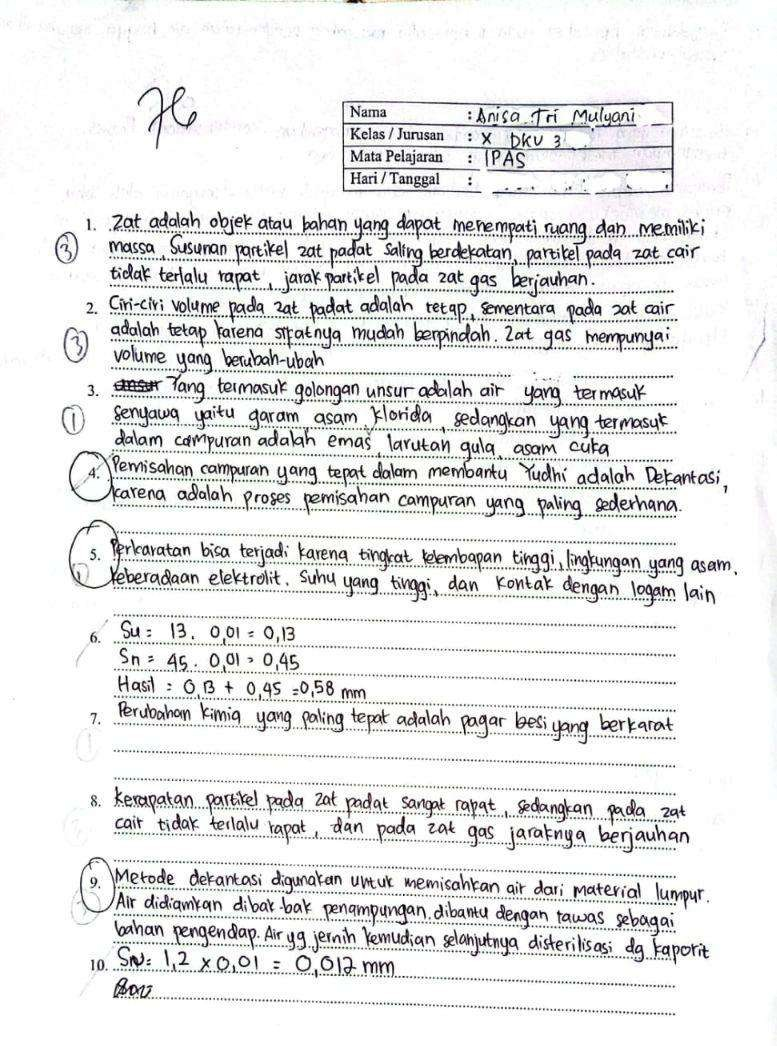 76
Nama : Anisa Tri Mulyani
Kelas / Jurusan : X DKV 3
Mata Pelajaran : IPAS
Hari / Tanggal :
1. Zat adalah objek atau bahan yang dapat menempati ruang dan memiliki
3 massa, Susunan partikel zat padat saling berdekatan, partikel pada zat cair
tidak terlalu rapat, jarak partikel pada zat gas berjauhan.
2. Ciri-ciri volume pada zat padat adalah tetap, sementara pada zat cair
3 adalah tetap karena sifatnya mudah berpindah. Zat gas mempunyai
volume yang berubah-ubah
3. Yang termasuk golongan unsur adalah air yang termasuk
1 senyawa yaitu garam asam klorida, sedangkan yang termasuk
dalam campuran adalah emas, larutan gula, asam cuka
4. Pemisahan campuran yang tepat dalam membantu Yudhi adalah Dekantasi,
karena adalah proses pemisahan campuran yang paling sederhana.
5. Perkaratan bisa terjadi karena tingkat kelembapan tinggi, lingkungan yang asam.
1 keberadaan elektrolit. Suhu yang tinggi, dan kontak dengan logam lain
6. Su = 13. 0,01 = 0,13
Sn = 45. 0,01 = 0,45
Hasil : 0,13 + 0,45 = 0,58 mm
7. Perubahan kimia yang paling tepat adalah pagar besi yang berkarat
1
8. Kerapatan partikel pada zat padat sangat rapat, sedangkan pada zat
cair tidak terlalu rapat, dan pada zat gas jaraknya berjauhan
9. Metode dekantasi digunakan untuk memisahkan air dari material lumpur.
Air didiamkan dibak-bak penampungan, dibantu dengan tawas sebagai
bahan pengendap. Air yg jernih kemudian selanjutnya disterilisasi dg kaporit
10. SN= 1,2 x 0,01 = 0,012 mm